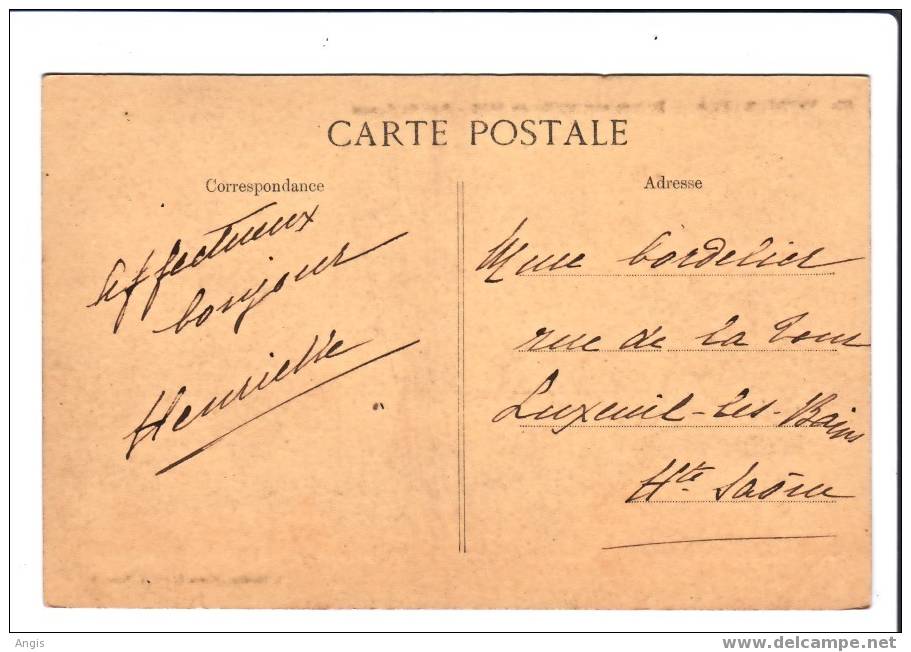 CARTE POSTALE
Correspondance
Affectueux
bonjour
Henriette
Adresse
Mme Cordelier
rue de la Tour
Luxeuil-les-Bains
Hte Saône
Angis
www.delcampe.net